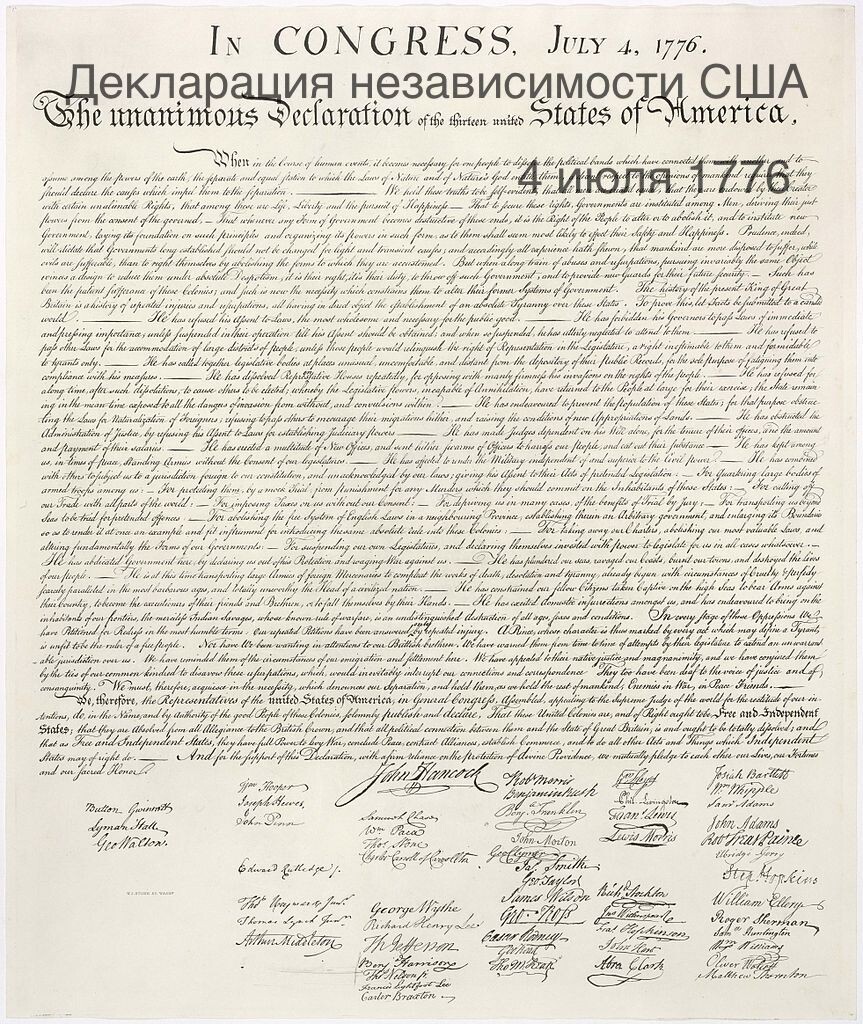 IN CONGRESS, JULY 4, 1776.
Декларация независимости США
The unanimous Declaration of the thirteen united States of America,
When in the Course of human events, it becomes necessary for one people to dissolve the political bands which have connected them
4 июля 1776
assume among the powers of the earth, the separate and equal station to which the Laws of Nature and of Nature's God
should declare the causes which impel them to the separation. We hold these truths to be self-evident, that
with certain unalienable Rights, that among these are Life, Liberty and the pursuit of Happiness.— That to secure these rights, Governments are instituted among Men, deriving their just
powers from the consent of the governed,— That whenever any Form of Government becomes destructive of these ends, it is the Right of the People to alter or to abolish it, and to institute new
Government, laying its foundation on such principles and organizing its powers in such form, as to them shall seem most likely to effect their Safety and Happiness. Prudence, indeed,
will dictate that Governments long established should not be changed for light and transient causes; and accordingly all experience hath shewn, that mankind are more disposed to suffer, while
evils are sufferable, than to right themselves by abolishing the forms to which they are accustomed. But when a long train of abuses and usurpations, pursuing invariably the same Object
evinces a design to reduce them under absolute Despotism, it is their right, it is their duty, to throw off such Government, and to provide new Guards for their future security.— Such has
been the patient sufferance of these Colonies; and such is now the necessity which constrains them to alter their former Systems of Government. The history of the present King of Great
Britain is a history of repeated injuries and usurpations, all having in direct object the establishment of an absolute Tyranny over these States. To prove this, let Facts be submitted to a candid
world. He has refused his Assent to Laws, the most wholesome and necessary for the public good. He has forbidden his Governors to pass Laws of immediate
and pressing importance, unless suspended in their operation till his Assent should be obtained; and when so suspended, he has utterly neglected to attend to them. He has refused to
pass other Laws for the accommodation of large districts of people, unless those people would relinquish the right of Representation in the Legislature, a right inestimable to them and formidable
to tyrants only. He has called together legislative bodies at places unusual, uncomfortable, and distant from the depository of their public Records, for the sole purpose of fatiguing them into
compliance with his measures. He has dissolved Representative Houses repeatedly, for opposing with manly firmness his invasions on the rights of the people. He has refused for
a long time, after such dissolutions, to cause others to be elected; whereby the Legislative powers, incapable of Annihilation, have returned to the People at large for their exercise; the State remain-
ing in the mean time exposed to all the dangers of invasion from without, and convulsions within. He has endeavoured to prevent the population of these States; for that purpose obstruc-
ting the Laws for Naturalization of Foreigners; refusing to pass others to encourage their migrations hither, and raising the conditions of new Appropriations of Lands. He has obstructed the
Administration of Justice, by refusing his Assent to Laws for establishing Judiciary powers. He has made Judges dependent on his Will alone, for the tenure of their offices, and the amount
and payment of their salaries. He has erected a multitude of New Offices, and sent hither swarms of Officers to harass our people, and eat out their substance. He has kept among
us, in times of peace, Standing Armies without the Consent of our legislatures. He has affected to render the Military independent of and superior to the Civil power. He has combined
with others to subject us to a jurisdiction foreign to our constitution, and unacknowledged by our laws; giving his Assent to their Acts of pretended Legislation:— For Quartering large bodies of
armed troops among us:— For protecting them, by a mock Trial, from punishment for any Murders which they should commit on the Inhabitants of these States:— For cutting off
our Trade with all parts of the world:— For imposing Taxes on us without our Consent:— For depriving us in many cases, of the benefits of Trial by Jury:— For transporting us beyond
Seas to be tried for pretended offences— For abolishing the free System of English Laws in a neighbouring Province, establishing therein an Arbitrary government, and enlarging its Boundaries
so as to render it at once an example and fit instrument for introducing the same absolute rule into these Colonies:— For taking away our Charters, abolishing our most valuable Laws, and
altering fundamentally the Forms of our Governments:— For suspending our own Legislatures, and declaring themselves invested with power to legislate for us in all cases whatsoever.—
He has abdicated Government here, by declaring us out of his Protection and waging War against us. He has plundered our seas, ravaged our Coasts, burnt our towns, and destroyed the lives
of our people. He is at this time transporting large Armies of foreign Mercenaries to compleat the works of death, desolation and tyranny, already begun with circumstances of Cruelty & perfidy
scarcely paralleled in the most barbarous ages, and totally unworthy the Head of a civilized nation. He has constrained our fellow Citizens taken Captive on the high Seas to bear Arms against
their Country, to become the executioners of their friends and Brethren, or to fall themselves by their Hands. He has excited domestic insurrections amongst us, and has endeavoured to bring on the
inhabitants of our frontiers, the merciless Indian Savages, whose known rule of warfare, is an undistinguished destruction of all ages, sexes and conditions. In every stage of these Oppressions We
have Petitioned for Redress in the most humble terms: Our repeated Petitions have been answered only by repeated injury. A Prince, whose character is thus marked by every act which may define a Tyrant,
is unfit to be the ruler of a free people. Nor have We been wanting in attentions to our Brittish brethren. We have warned them from time to time of attempts by their legislature to extend an unwarrant-
able jurisdiction over us. We have reminded them of the circumstances of our emigration and settlement here. We have appealed to their native justice and magnanimity, and we have conjured them
by the ties of our common kindred to disavow these usurpations, which, would inevitably interrupt our connections and correspondence. They too have been deaf to the voice of justice and of
consanguinity. We must, therefore, acquiesce in the necessity, which denounces our Separation, and hold them, as we hold the rest of mankind, Enemies in War, in Peace Friends.
We, therefore, the Representatives of the united States of America, in General Congress, Assembled, appealing to the Supreme Judge of the world for the rectitude of our in-
tentions, do, in the Name, and by Authority of the good People of these Colonies, solemnly publish and declare, That these United Colonies are, and of Right ought to be Free and Independent
States; that they are Absolved from all Allegiance to the British Crown, and that all political connection between them and the State of Great Britain, is and ought to be totally dissolved; and
that as Free and Independent States, they have full Power to levy War, conclude Peace, contract Alliances, establish Commerce, and to do all other Acts and Things which Independent
States may of right do. And for the support of this Declaration, with a firm reliance on the protection of divine Providence, we mutually pledge to each other our Lives, our Fortunes
and our sacred Honor.
Button Gwinnett
Lyman Hall
Geo Walton.
Wm Hooper
Joseph Hewes,
John Penn
Edward Rutledge.
Thos Heyward Junr.
Thomas Lynch Junr.
Arthur Middleton
John Hancock
Samuel Chase
Wm Paca
Thos Stone
Charles Carroll of Carrollton
George Wythe
Richard Henry Lee
Th Jefferson
Benj Harrison
Thos Nelson jr.
Francis Lightfoot Lee
Carter Braxton
Robt Morris
Benjamin Rush
Benj. Franklin
John Morton
Geo Clymer
Jas. Smith
Geo Taylor
James Wilson
Geo. Ross
Caesar Rodney
Geo Read
Tho M:Kean
Wm Floyd
Phil. Livingston
Frans. Lewis
Lewis Morris
Richd. Stockton
Jno Witherspoon
Fras. Hopkinson
John Hart
Abra Clark
Josiah Bartlett
Wm Whipple
Saml Adams
John Adams
Robt Treat Paine
Elbridge Gerry
Step. Hopkins
William Ellery
Roger Sherman
Saml Huntington
Wm Williams
Oliver Wolcott
Matthew Thornton